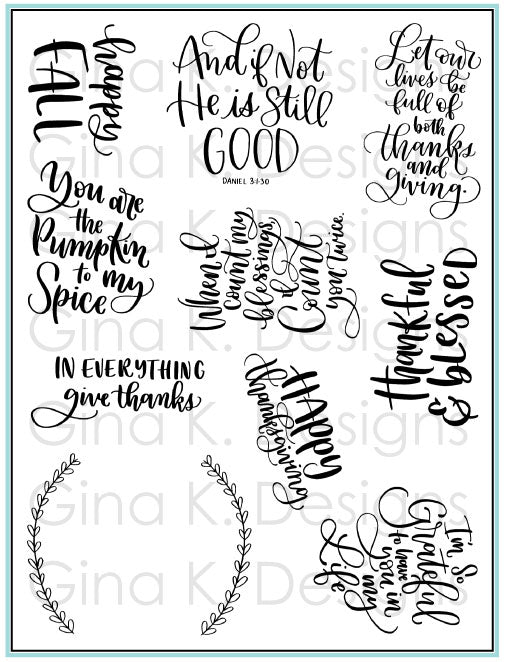 happy
FALL
And if Not
He is Still
GOOD
DANIEL 3:1-30
Let our
lives be
full of
both
thanks
and
giving.
You are
the
Pumpkin
to my
Spice
When I
count my
blessings,
I
Count
you twice.
thankful
& blessed
IN EVERYTHING
give thanks
HAPPY
Thanksgiving
I'm So
Grateful
to have
you in
my
Life
Gina K. Designs
Gina K. Designs
Gina K. Designs
Gina K. Designs
Gina K. Designs
Gina K. Designs
Gina K. Designs